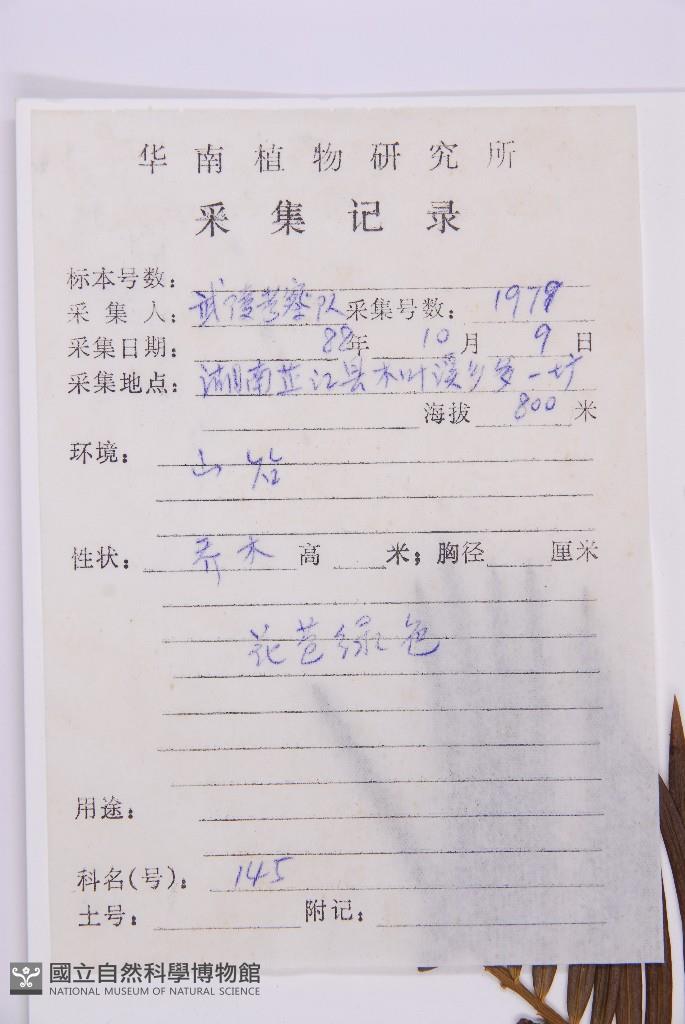 华南植物研究所
采集记录
标本号数：
采集人：武陵考察队 采集号数：1979
采集日期：88年10月9日
采集地点：湖南芷江县木叶溪乡 一坊
海拔 800 米
环境：山谷
性状：乔木 高 米；胸径 厘米
花苞绿色
用途：
科名(号)：145
土号： 附记：
國立自然科學博物館
NATIONAL MUSEUM OF NATURAL SCIENCE